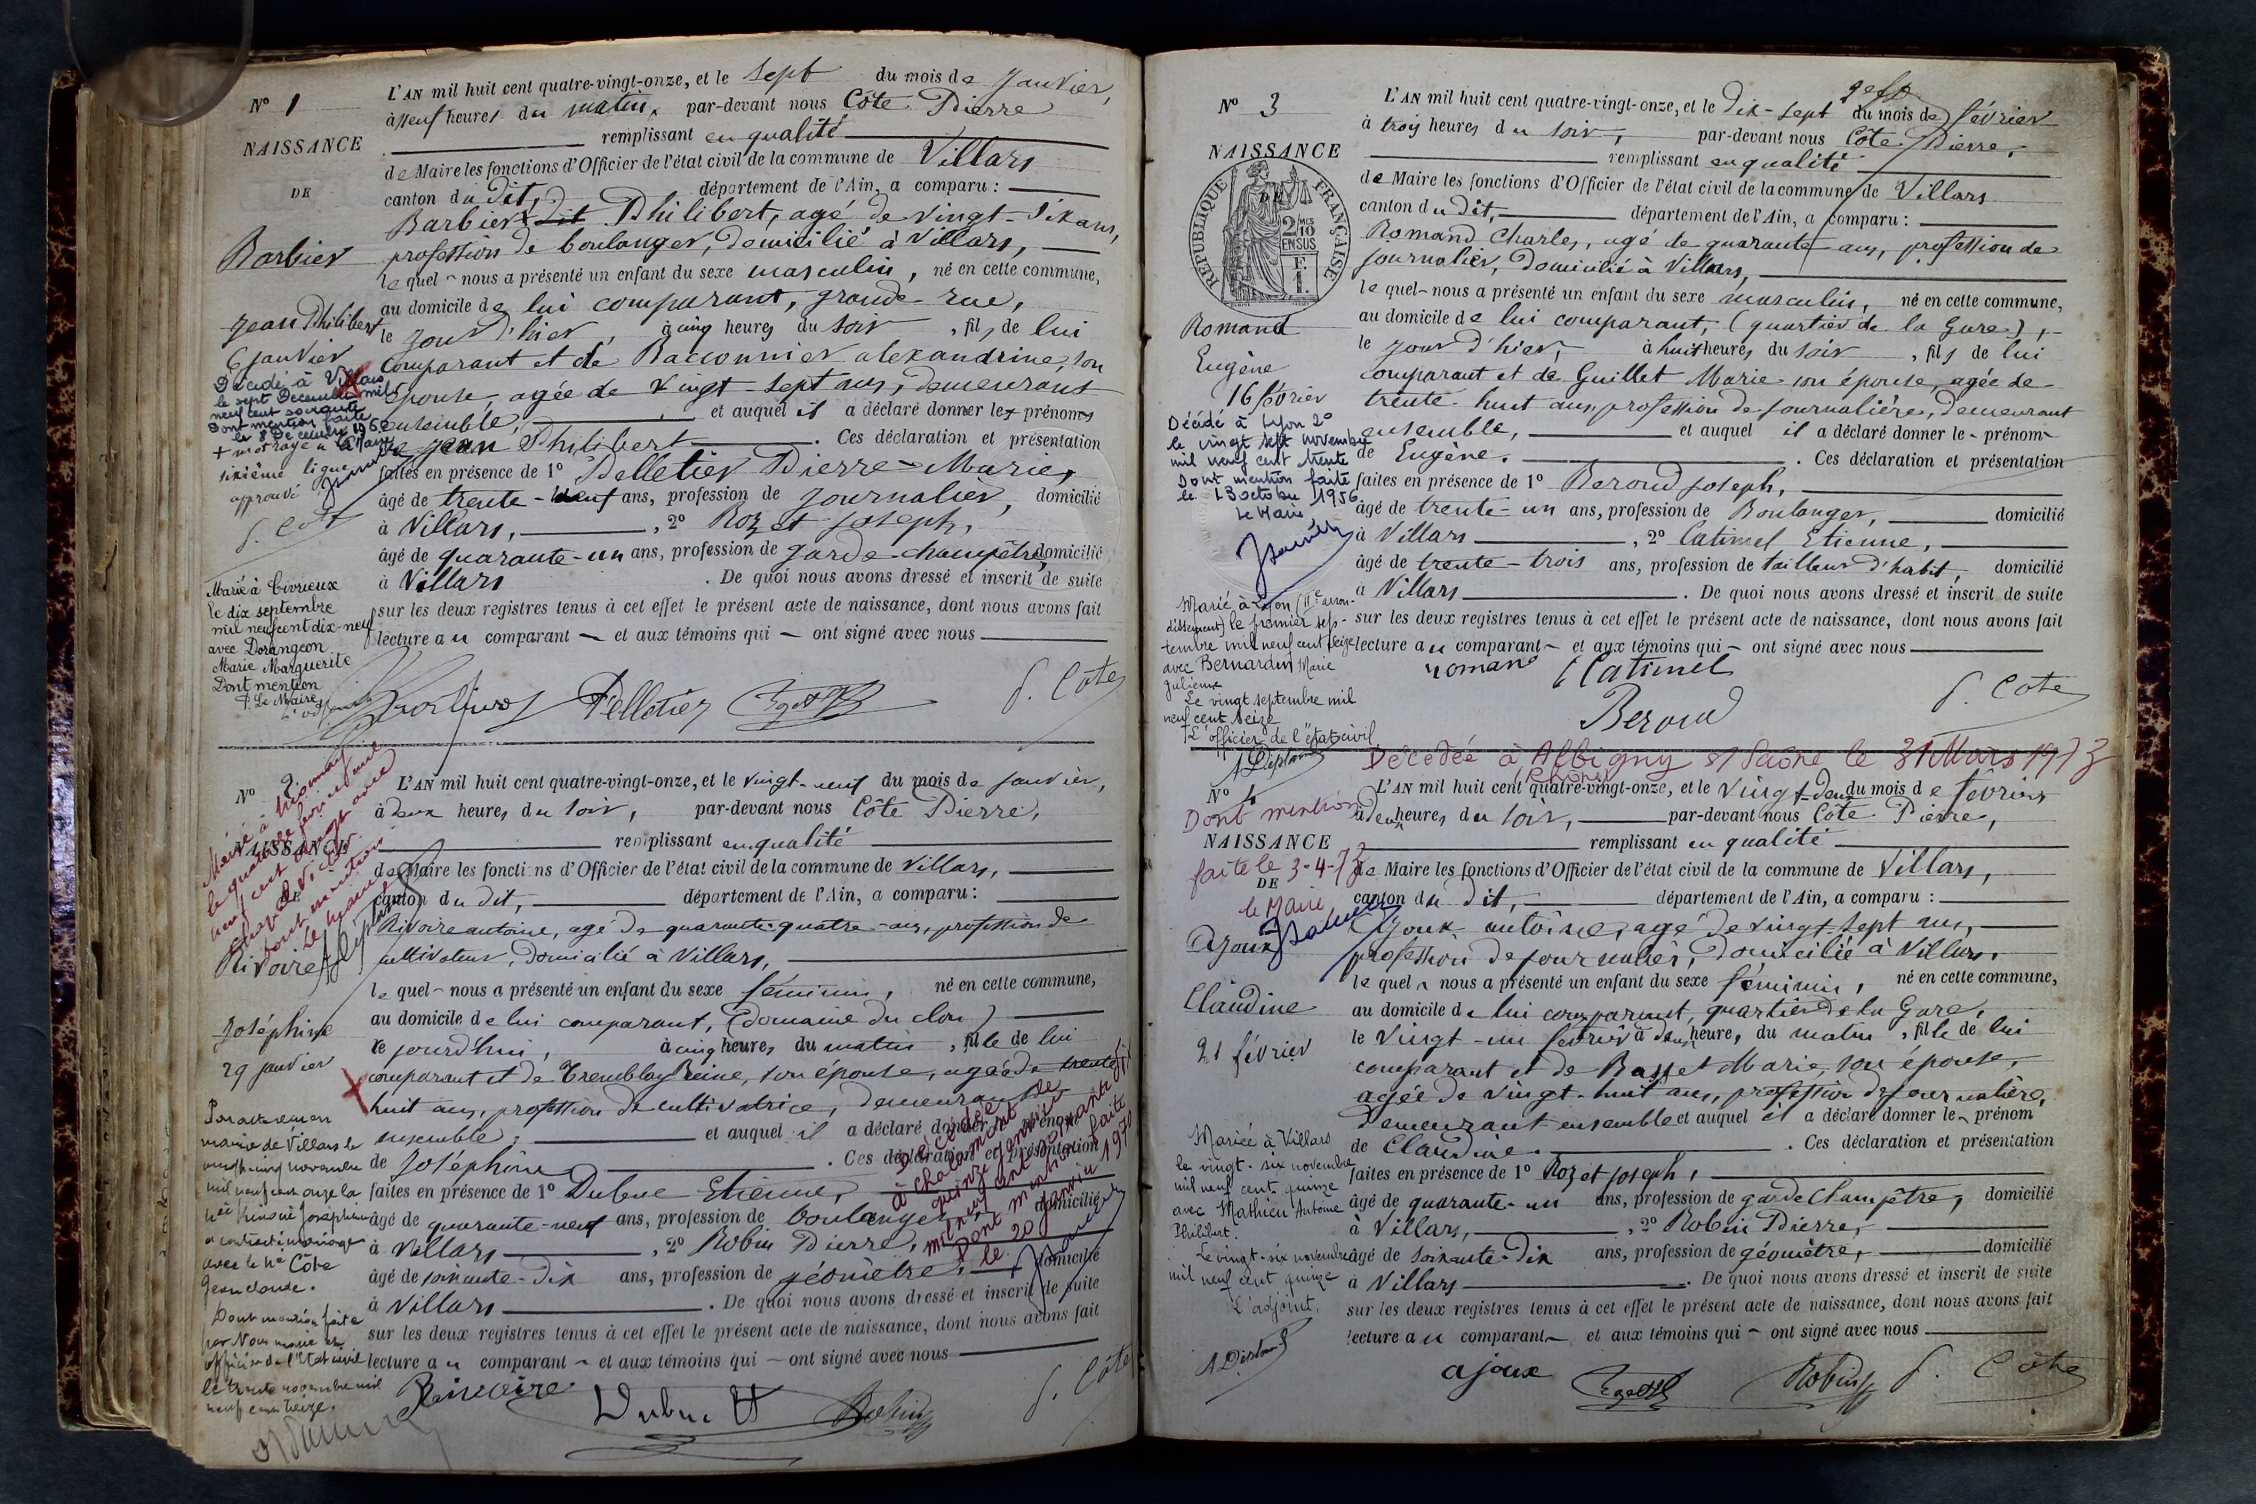 N° 1
NAISSANCE
DE
Barbier
Jean Philibert
6 janvier
Décédé à Villars
le sept Decembre mil
neuf cent soixante
Dont mention faite
le 8 Decembre 1960
+ mot rayé à la
sixième ligne
approuvé
P. Cote
Marié à Civrieux
le dix septembre
mil neuf cent dix-neuf
avec Dorangeon
Marie Marguerite
Dont mention
P. Le Maire
L'AN mil huit cent quatre-vingt-onze, et le sept du mois de janvier,
à neuf heures du matin, par-devant nous Côte Pierre
remplissant en qualité
de Maire les fonctions d'Officier de l'état civil de la commune de Villars
canton du dit, département de l'Ain, a comparu :
Barbier dit Philibert, agé de vingt-six ans,
profession de boulanger, domicilié à Villars,
le quel nous a présenté un enfant du sexe masculin, né en cette commune,
au domicile de lui comparant, grande rue,
le jour d'hier, à cinq heures du soir, fils de lui
comparant et de Bacconnier alexandrine, son
épouse, agée de vingt-sept ans, demeurant
ensemble, et auquel il a déclaré donner les prénoms
de jean Philibert. Ces déclaration et présentation
faites en présence de 1° Pelletier Pierre-Marie,
âgé de trente-neuf ans, profession de journalier, domicilié
à Villars, 2° Rozet joseph,
âgé de quarante-un ans, profession de garde-champêtre, domicilié
à Villars. De quoi nous avons dressé et inscrit de suite
sur les deux registres tenus à cet effet le présent acte de naissance, dont nous avons fait
lecture au comparant et aux témoins qui ont signé avec nous
Pelletier P. Cote
N° 2
NAISSANCE
DE
Rivoire
Joséphine
29 janvier
Marié à
le quatorze
neuf cent vingt
dont mention
Le Maire
Par acte reçu en
mairie de Villars le
vingt cinq novembre
mil neuf cent onze la
née Rivoire Joséphine
a contracté mariage
avec le né Côte
Jean claude.
Dont mention faite
par Nous maire et
officier de l'état civil
le trente novembre mil
neuf cent treize.
L'AN mil huit cent quatre-vingt-onze, et le vingt-neuf du mois de janvier,
à deux heures du soir, par-devant nous Côte Pierre,
remplissant en qualité
de Maire les fonctions d'Officier de l'état civil de la commune de Villars,
canton du dit, département de l'Ain, a comparu :
Rivoire antoine, agé de quarante-quatre ans, profession de
cultivateur, domicilié à Villars,
le quel nous a présenté un enfant du sexe féminin, né en cette commune,
au domicile de lui comparant, (domaine du clou)
le jourd'hui, à cinq heures du matin, fille de lui
comparant et de Tremblay Reine, son épouse, agée de trente
huit ans, profession de cultivatrice, demeurant
ensemble, et auquel il a déclaré donner le prénom
de Joséphine. Ces déclaration et présentation
faites en présence de 1° Dubuc Etienne,
âgé de quarante-neuf ans, profession de boulanger, domicilié
à Villars, 2° Robin Pierre,
âgé de soixante-dix ans, profession de géomètre, domicilié
à Villars. De quoi nous avons dressé et inscrit de suite
sur les deux registres tenus à cet effet le présent acte de naissance, dont nous avons fait
lecture au comparant et aux témoins qui ont signé avec nous
Décédée
à Chalamont le
quinze janvier
mil neuf cent soixante dix
Dont mention faite
le 20 janvier 197
Rivoire Dubuc Robin P. Côte
N° 3
NAISSANCE
DE
RÉPUBLIQUE FRANÇAISE
2/10
EN SUS
F.
1.
Romand
Eugène
16 février
Décédé à Lyon 2°
le vingt sept novembre
mil neuf cent trente
Dont mention faite
le 13 octobre 1956
Le Maire
Marié à Lyon (II° arron-
dissement) le premier sep-
tembre mil neuf cent seize
avec Bernardin Marie
Julienne
Le vingt septembre mil
neuf cent seize
L'officier de l'état civil
L'AN mil huit cent quatre-vingt-onze, et le dix-sept du mois de février
à trois heures du soir, par-devant nous Côte Pierre,
remplissant en qualité
de Maire les fonctions d'Officier de l'état civil de la commune de Villars
canton du dit, département de l'Ain, a comparu :
Romand Charles, agé de quarante ans, profession de
journalier, domicilié à Villars,
le quel nous a présenté un enfant du sexe masculin, né en cette commune,
au domicile de lui comparant, (quartier de la Gare),
le jour d'hier, à huit heures du soir, fils de lui
comparant et de Guillet Marie son épouse, agée de
trente-huit ans, profession de journalière, demeurant
ensemble, et auquel il a déclaré donner le prénom
de Eugène. Ces déclaration et présentation
faites en présence de 1° Beroud joseph,
âgé de trente-un ans, profession de Boulanger, domicilié
à Villars, 2° Catimel Etienne,
âgé de trente-trois ans, profession de tailleur d'habit, domicilié
à Villars. De quoi nous avons dressé et inscrit de suite
sur les deux registres tenus à cet effet le présent acte de naissance, dont nous avons fait
lecture au comparant et aux témoins qui ont signé avec nous
romand Catimel
Beroud P. Cote
Décédée à Albigny s/ Saône le 31 Mars 1973
(Rhône)
N° 4
Dont mention
NAISSANCE
faite le 3-4-73
DE
le Maire
Ajoux
Claudine
21 février
Mariée à Villars
le vingt-six novembre
mil neuf cent quinze
avec Mathieu Antoine
Philibert.
Le vingt-six novembre
mil neuf cent quinze
L'adjoint.
L'AN mil huit cent quatre-vingt-onze, et le vingt-deux du mois de février
à deux heures du soir, par-devant nous Côte Pierre,
remplissant en qualité
de Maire les fonctions d'Officier de l'état civil de la commune de Villars,
canton du dit, département de l'Ain, a comparu :
Ajoux antoine, agé de vingt-sept ans,
profession de journalier, domicilié à Villars,
le quel nous a présenté un enfant du sexe féminin, né en cette commune,
au domicile de lui comparant, quartier de la Gare,
le vingt-un février à deux heures du matin, fille de lui
comparant et de Basset Marie, son épouse,
agée de vingt-huit ans, profession de journalière,
demeurant ensemble et auquel il a déclaré donner le prénom
de Claudine. Ces déclaration et présentation
faites en présence de 1° Rozet joseph,
âgé de quarante-un ans, profession de garde champêtre, domicilié
à Villars, 2° Robin Pierre,
âgé de soixante-dix ans, profession de géomètre, domicilié
à Villars. De quoi nous avons dressé et inscrit de suite
sur les deux registres tenus à cet effet le présent acte de naissance, dont nous avons fait
lecture au comparant et aux témoins qui ont signé avec nous
ajoux Robin P. Côte